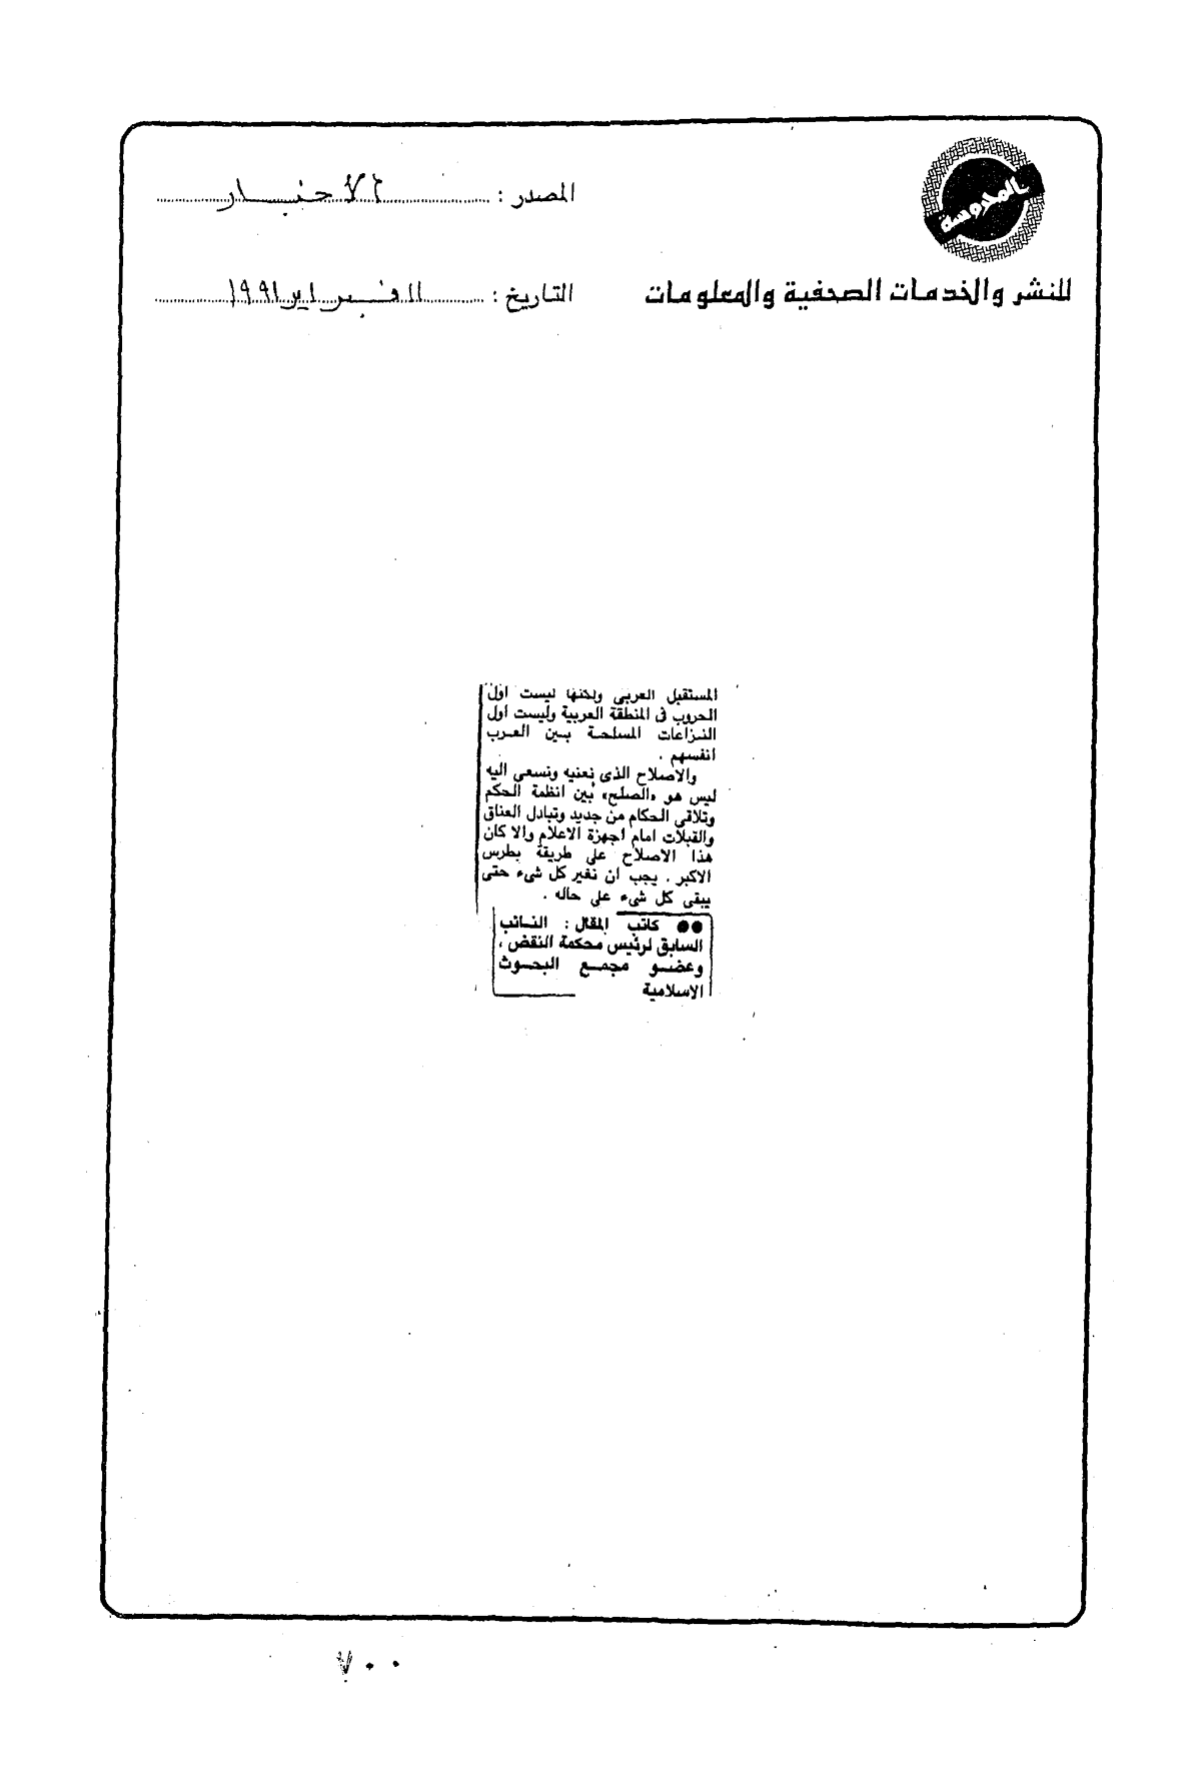 المحروسة
للنشر والخدمات الصحفية والمعلومات
المصدر : الأخبار
التاريخ : ١١ فبراير ١٩٩١
المستقبل العربى ولكنها ليست اول
الحروب فى المنطقة العربية وليست اول
النزاعات المسلحة بين العرب
انفسهم .
والاصلاح الذى نعنيه ونسعى اليه
ليس هو «الصلح» بين انظمة الحكم
وتلاقى الحكام من جديد وتبادل العناق
والقبلات امام اجهزة الاعلام والا كان
هذا الاصلاح على طريقة بطرس
الاكبر . يجب ان نغير كل شىء حتى
يبقى كل شىء على حاله .
●● كاتب المقال : النائب
السابق لرئيس محكمة النقض ،
وعضو مجمع البحوث
الاسلامية
٧٠٠